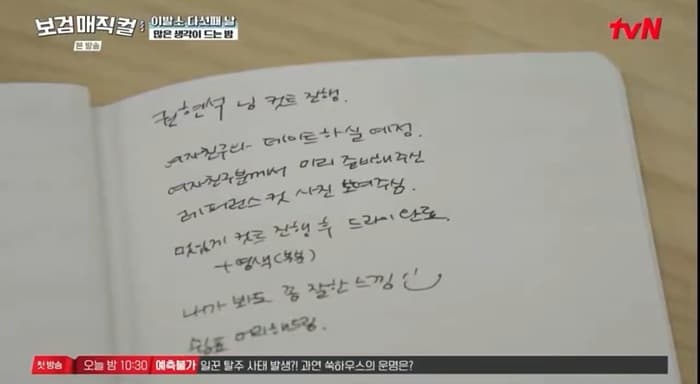 보검매직컬
본 방송
이발소 다섯째 날
많은 생각이 드는 밤
tvN
권현석 님 컷트 진행.
여자친구와 데이트하실 예정.
여자친구분께서 미리 준비해주신
레퍼런스 컷 사진 보여주심.
멋있게 컷트 진행 후 드라이 완료.
+ 염색(부분)
내가 봐도 좀 잘한 느낌
첫 방송 오늘 밤 10:30 예측불가 일꾼 탈주 사태 발생?! 과연 쑥하우스의 운명은?